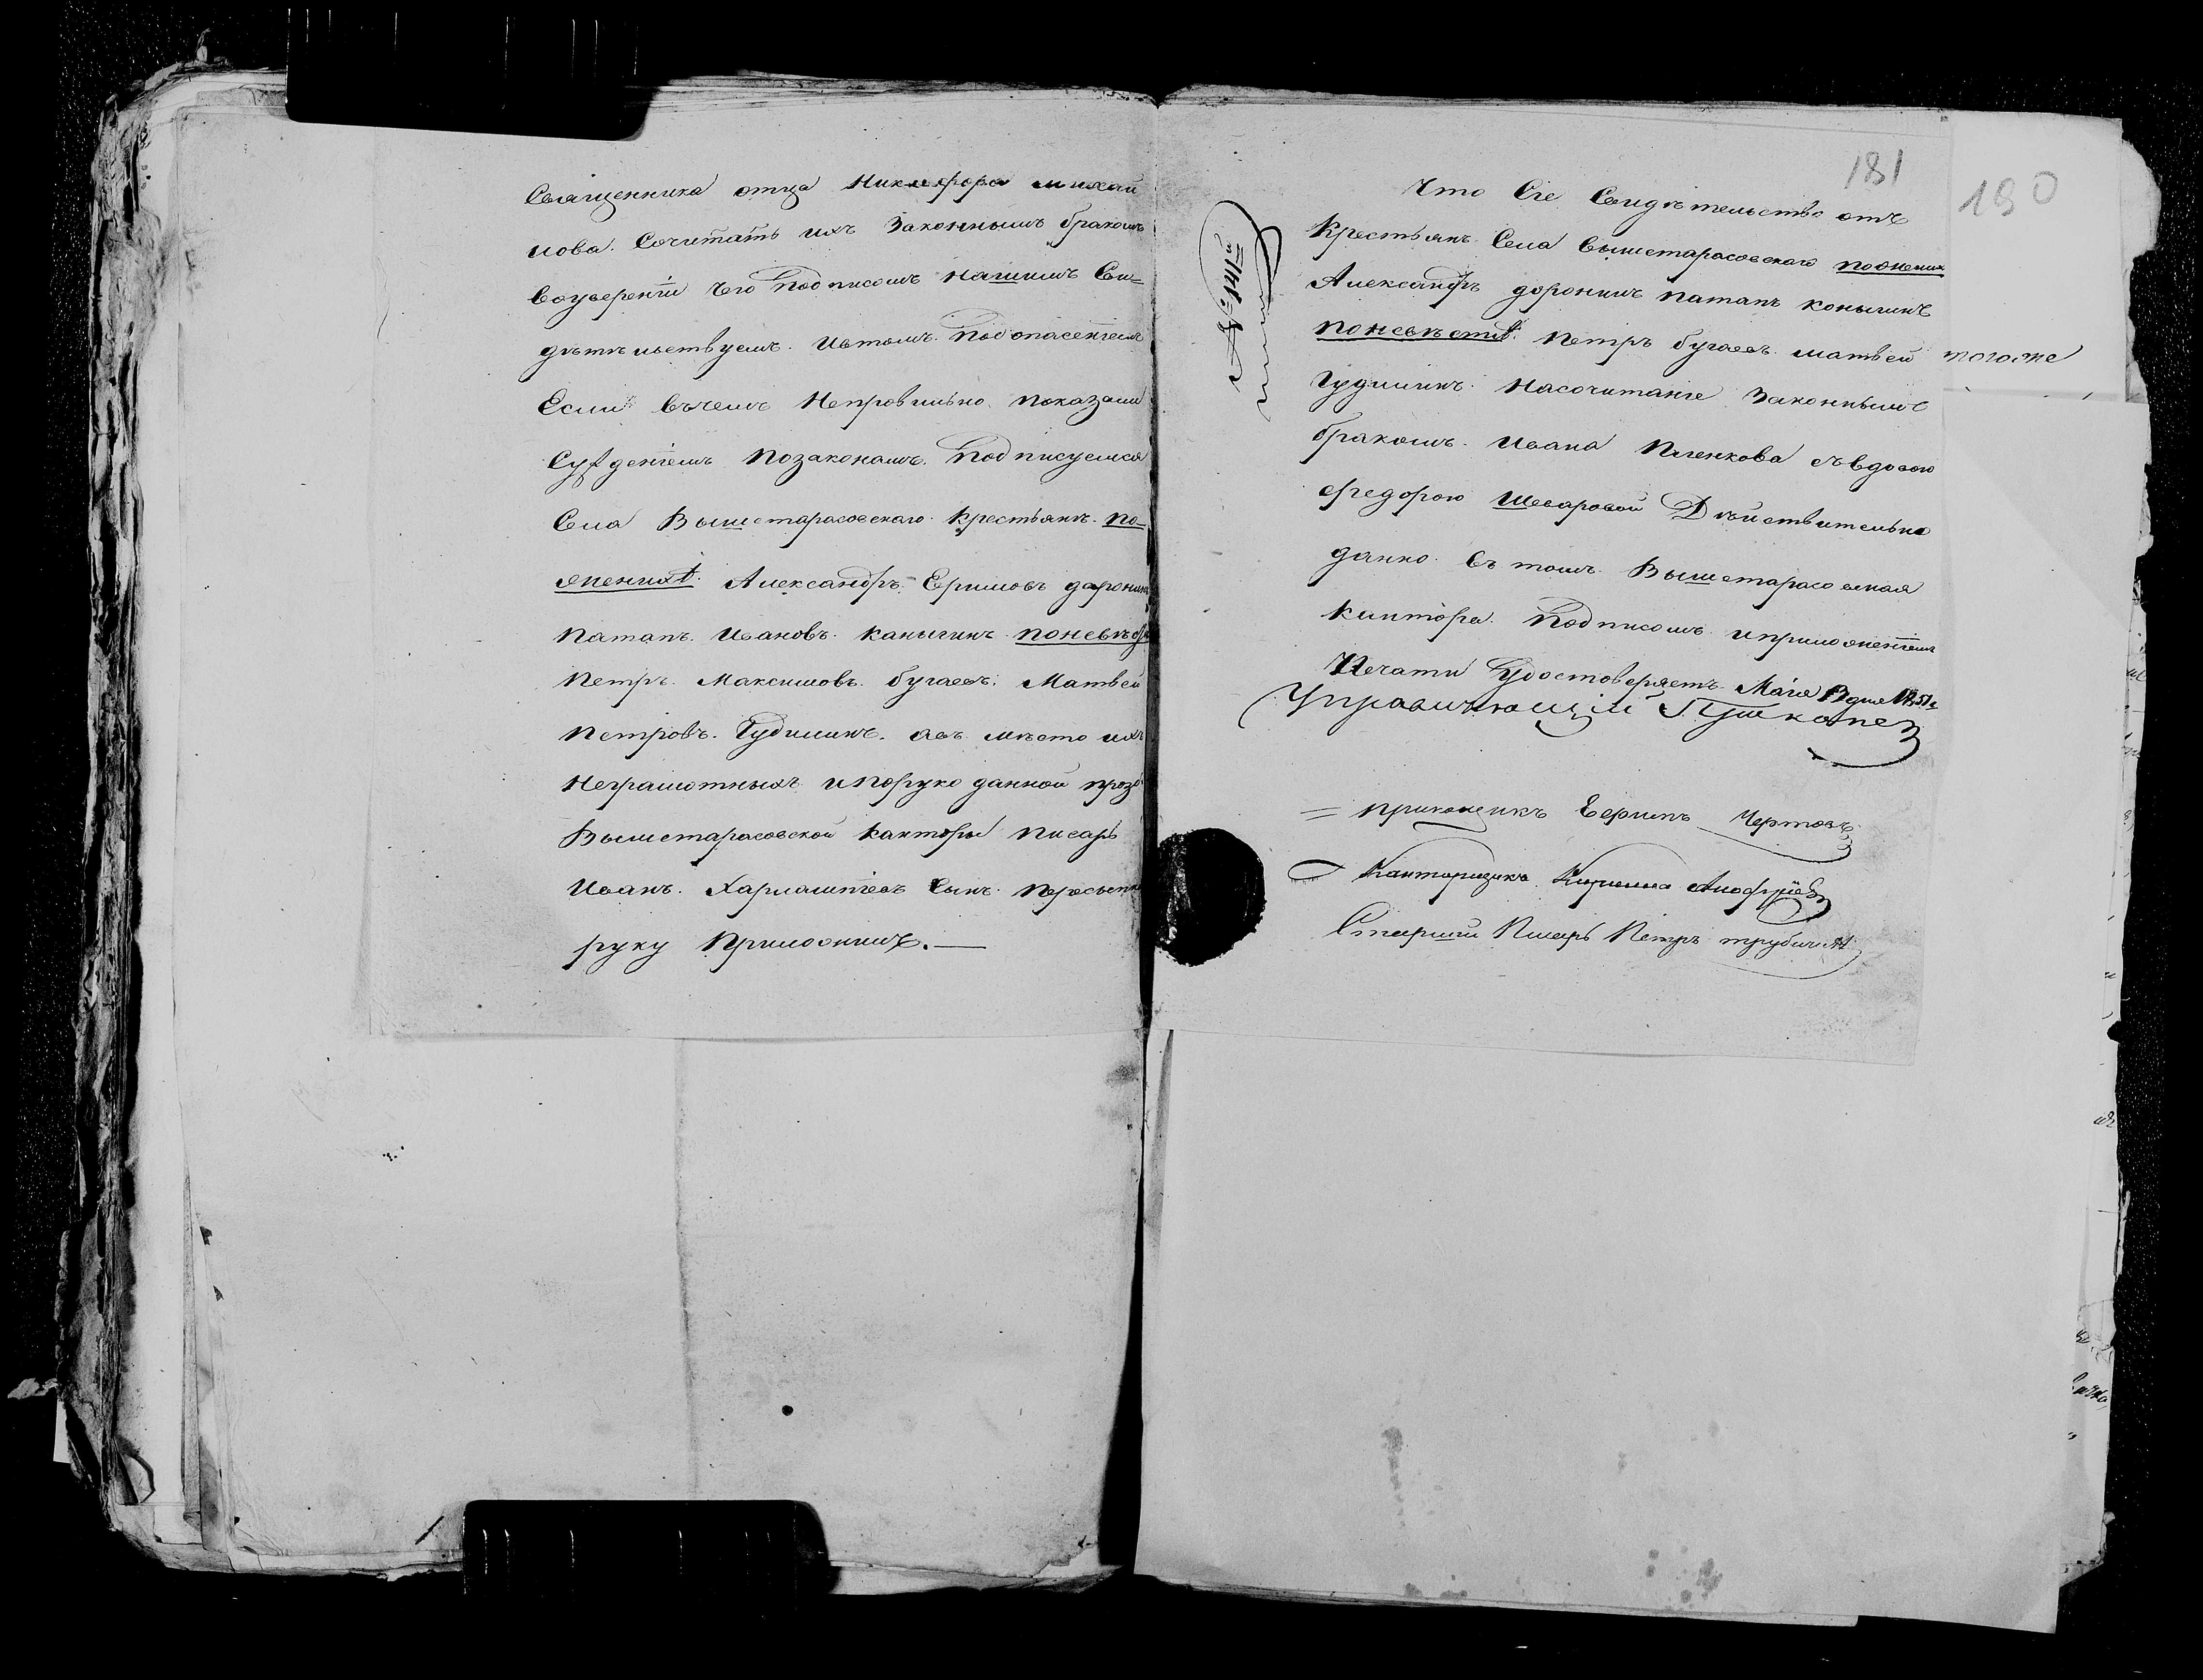 Священника отца Никифора михай
лова. Сочитать ихъ Законнымъ бракомъ
воуверенïи чего Подписомъ нашимъ Сви=
дѣтѣльствуемъ. Ивтомъ. Подопасенïемъ
Если въчемъ Неправильно показали
Сужденïемъ позаконамъ. Подписуемся
Села Вышетарасовскаго. Крестьянъ. по=
жениху. Александръ. Ефимовъ даронинъ
Патапъ. Ивановъ. Каныгинъ. поневѣстѣ
Петръ. Максимовъ. бугаевъ: Матвей
Петровъ. Гудилинъ. авъ мѣсто ихъ
Неграмотныхъ ипоруко данной прозбѣ
Вышетарасовской Канторы Писарь
Иванъ. Харлампïевъ Сынъ.
руку Приложилъ.—
181
190
Что Сïе Свидѣтельство отъ
Крестьянъ Села вышетарасовскаго пожених
Александръ доронинъ патапъ конычинъ
поневѣстѣ. Петръ бугаевъ. матвей тогоже
Гудилинъ. Насочитанïе Законнымъ
бракомъ. Ивана Пленкова съвдовою
Федорою Шеваровой Дѣйствительно
данно. въ томъ. Вышетарасовская
Кантора. Подписомъ. иприложенïемъ
Печати Удостоверяетъ. Маïя 3 дня 1851 г
Управляющïй
= прикащикъ Ефимъ Чертовъ
Канторщикъ. Кирилла Анофрïевъ
Старшïй Писарь Петръ